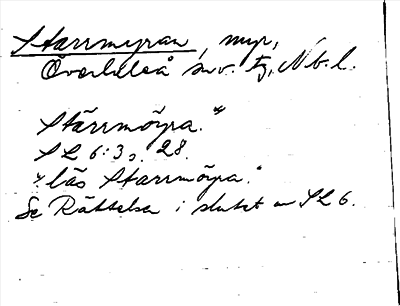 Starrmyran, myr,
Överluleå sn. o. tg, Nb. l.
Stärrmöyra.*
SL 6:3 s. 28.
* läs Starrmöyra.
Se Rättelser i slutet av SL 6.